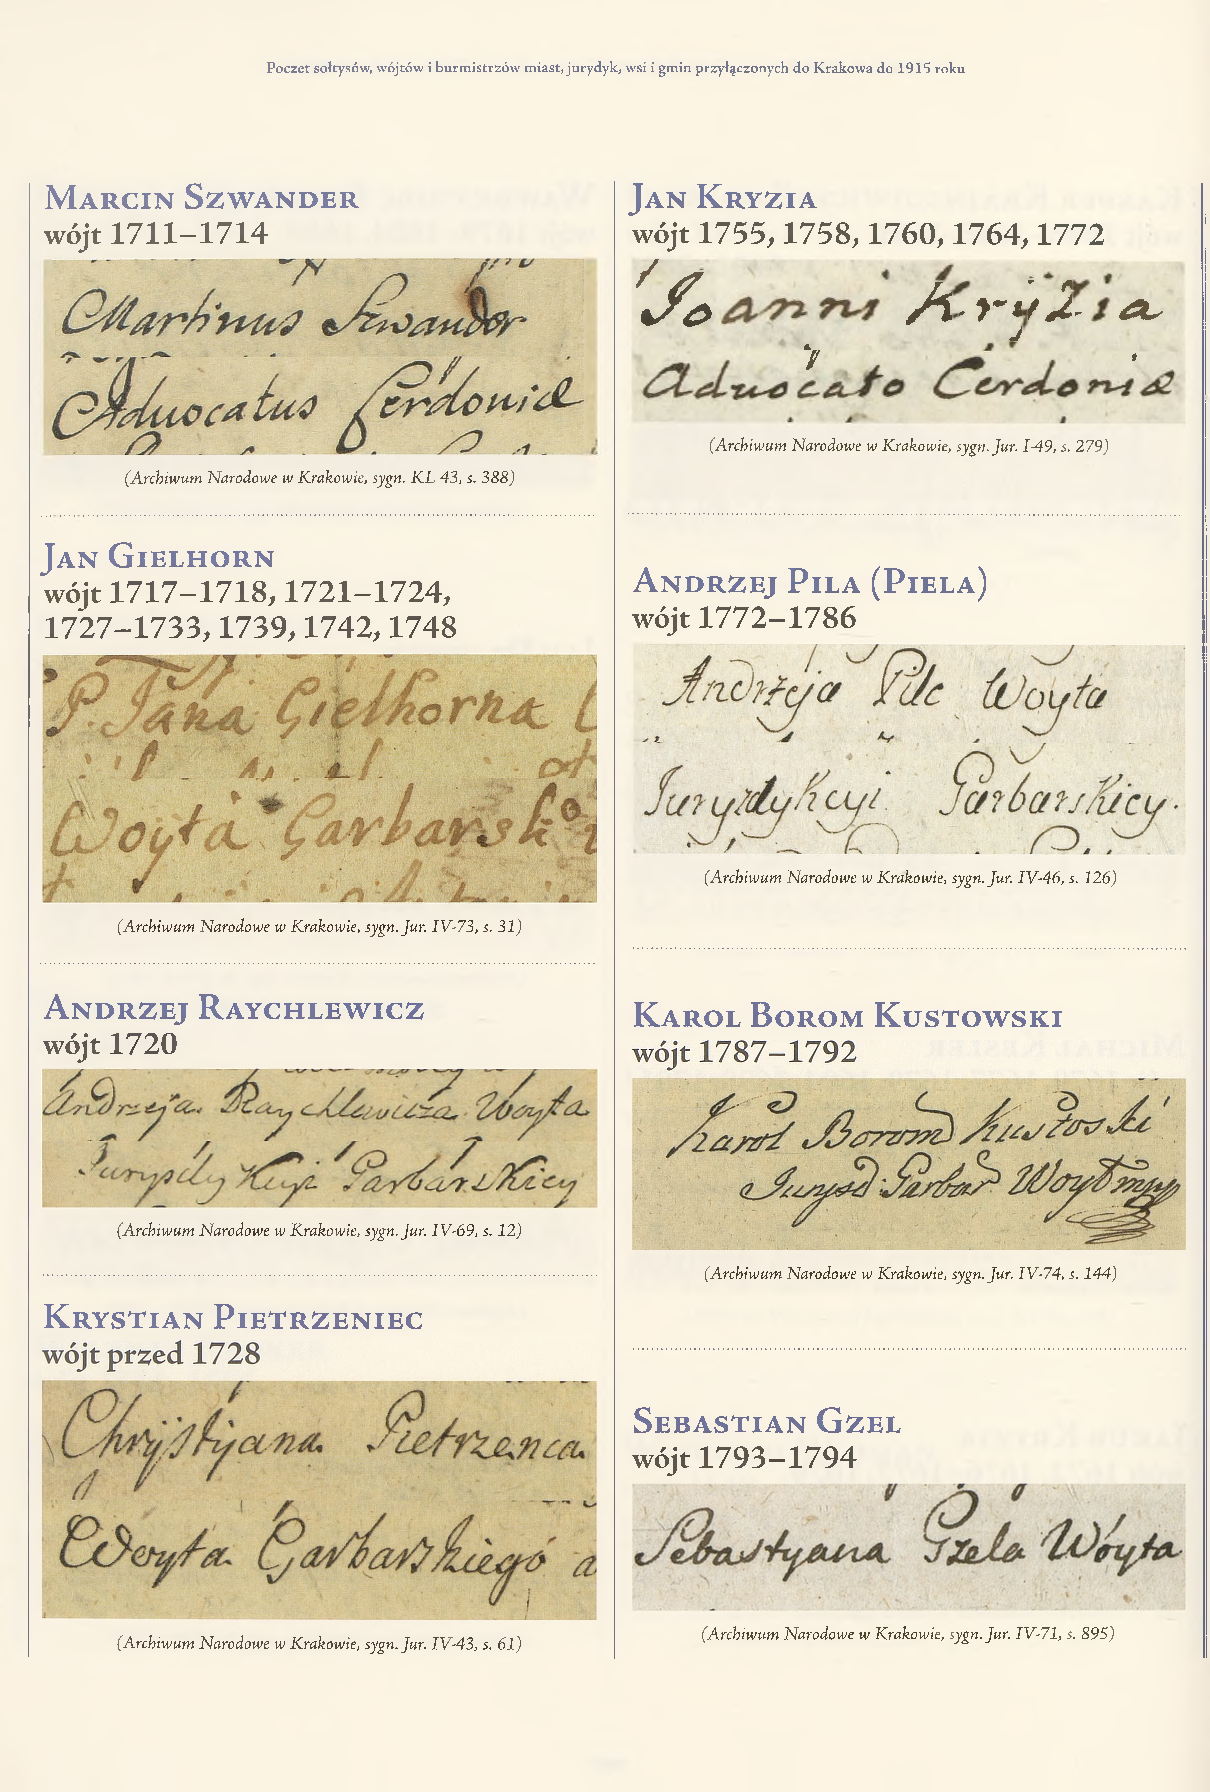 Poczet sołtysów, wójtów i burmistrzów miast, jurydyk, wsi i gmin przyłączonych do Krakowa do 1915 roku
Marcin Szwander
wójt 1711–1714
Martinus Szwander
Advocatus Cerdoniæ
(Archiwum Narodowe w Krakowie, sygn. KL 43, s. 388)
Jan Gielhorn
wójt 1717–1718, 1721–1724,
1727–1733, 1739, 1742, 1748
P. Jana Gielhorna
Woyta Garbarski
(Archiwum Narodowe w Krakowie, sygn. Jur. IV-73, s. 31)
Andrzej Raychlewicz
wójt 1720
Andrzeja Raychlewicza Woyta
Jurysdykcyi Garbarskiey
(Archiwum Narodowe w Krakowie, sygn. Jur. IV-69, s. 12)
Krystian Pietrzeniec
wójt przed 1728
Chrÿstÿana Pietrzenca
Woyta Garbarskiego a
(Archiwum Narodowe w Krakowie, sygn. Jur. IV-43, s. 61)
Jan Kryzia
wójt 1755, 1758, 1760, 1764, 1772
Joanni Krÿzia
Aduocato Cerdoniæ
(Archiwum Narodowe w Krakowie, sygn. Jur. I-49, s. 279)
Andrzej Pila (Piela)
wójt 1772–1786
Andrzeja Pile Woyta
Juryzdykcyi Garbarskiey.
(Archiwum Narodowe w Krakowie, sygn. Jur. IV-46, s. 126)
Karol Borom Kustowski
wójt 1787–1792
Karol Borom Kustoski
Jurysd: Garbar Woyt mpp
(Archiwum Narodowe w Krakowie, sygn. Jur. IV-74, s. 144)
Sebastian Gzel
wójt 1793–1794
Sebastyana Gzela Wóyta
(Archiwum Narodowe w Krakowie, sygn. Jur. IV-71, s. 895)